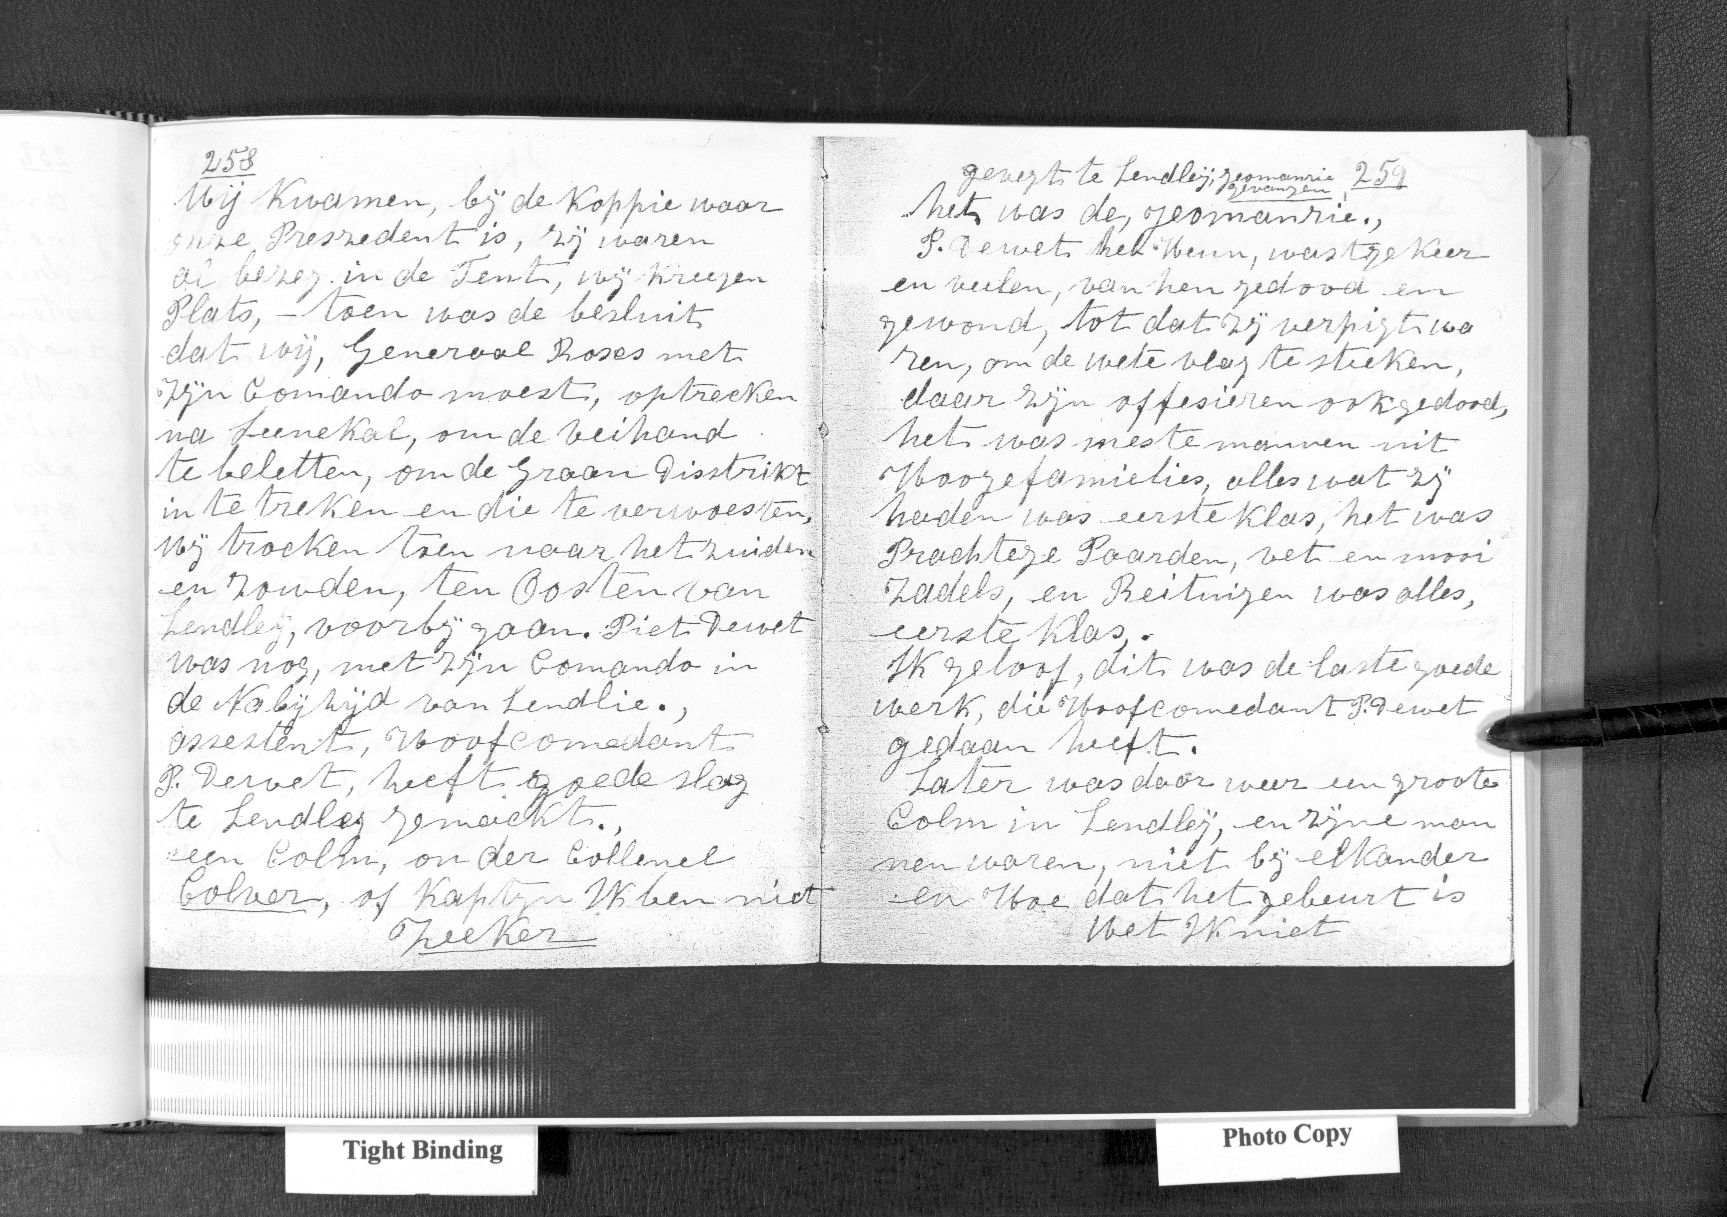 258
Wij Kwamen, bij de Koppie waar
onze Preszedent is, zij waren
al bezeg in de Tent, wij Kreegen
Plats, – toen was de besluit
dat wij, Generaal Roses met
Zijn Comando moest, optrecken
na Seenekal, om de Veihand
te beletten, om de Graan Disstrikt
in te treken en die te verwoesten,
Wij trocken toen naar het zuiden
en zouden, ten Oosten van
Lendleij, voorbij gaan. Piet Dewet
was nog, met zijn Comando in
de Nabijhijd van Lendlie.,
assestent, Hoofcomedant
P. Dewet, heeft goede slag
te Lendley gemaickt.,
een Colm, onder Collenel
Colver, of Kaptyn IK ben niet
Zeeker
gevegt te Lendleij, yeomanrie 259
gevangen
het was de, yeomanrie.,
P. Dewet het Heun, wast gekeer
en veelen, van hen gedood en
gewond, tot dat zij verpigt wa
ren, om de wete vlag te steeken,
daar zijn offesieren ook gedood,
het was meste mannen uit
Hoogefamielies, alles wat zij
haden was eerste klas, het was
Prachtege Paarden, vet en mooi
Zadels, en Reituigen was alles,
eerste klas,.
IK geloof, dit was de laste goede
werk, die Hoofcomedant P. Dewet
gedaan heeft.
Later was daar weer een groote
Colm in Lendleij, en zijne man
nen waren, niet bij elkander
en Hoe dat het gebeurt is
Wet IK niet
Tight Binding
Photo Copy